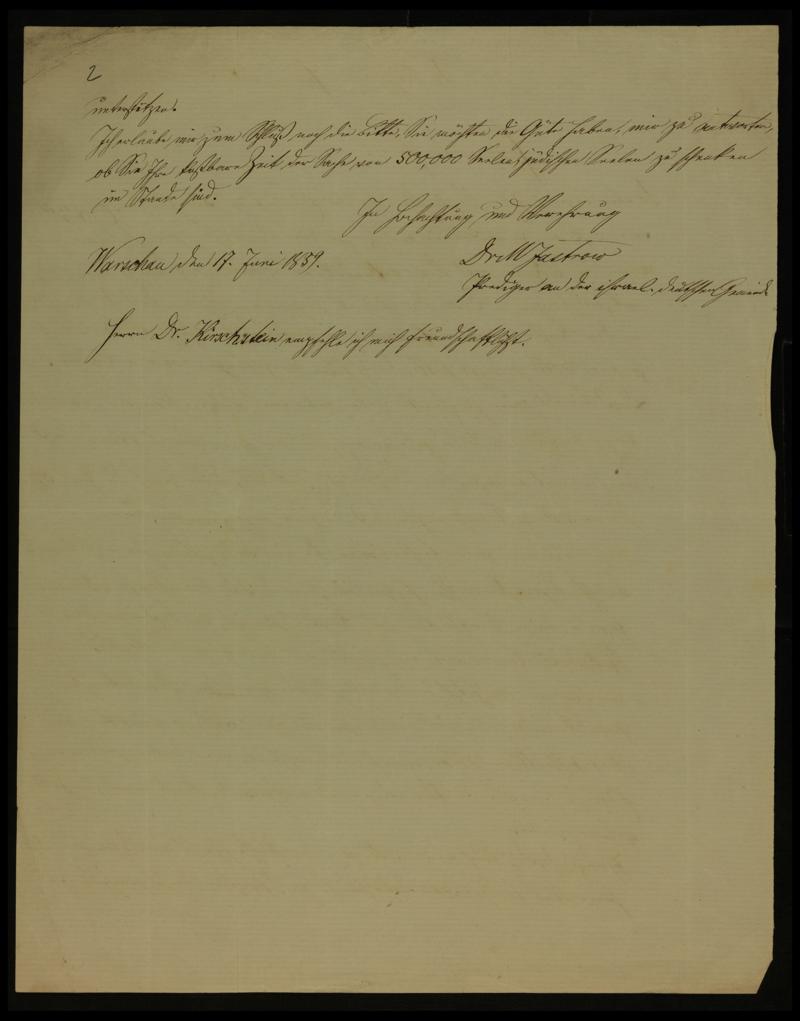 2
unterstützen.
Ich erlaube mir zum Schluß noch die Bitte, Sie möchten die Güte haben, mir zu antworten,
ob Sie Ihre kostbare Zeit der Sache von 500,000 Seelen jüdischen Seelen zu schenken
im Stande sind.
In Hochachtung und Verehrung
Warschau den 17. Juni 1859.
Dr M Jastrow
Prediger an der israel. deutschen Gemeinde
Herrn Dr. Kirschstein empfehle ich mich freundschaftlichst.